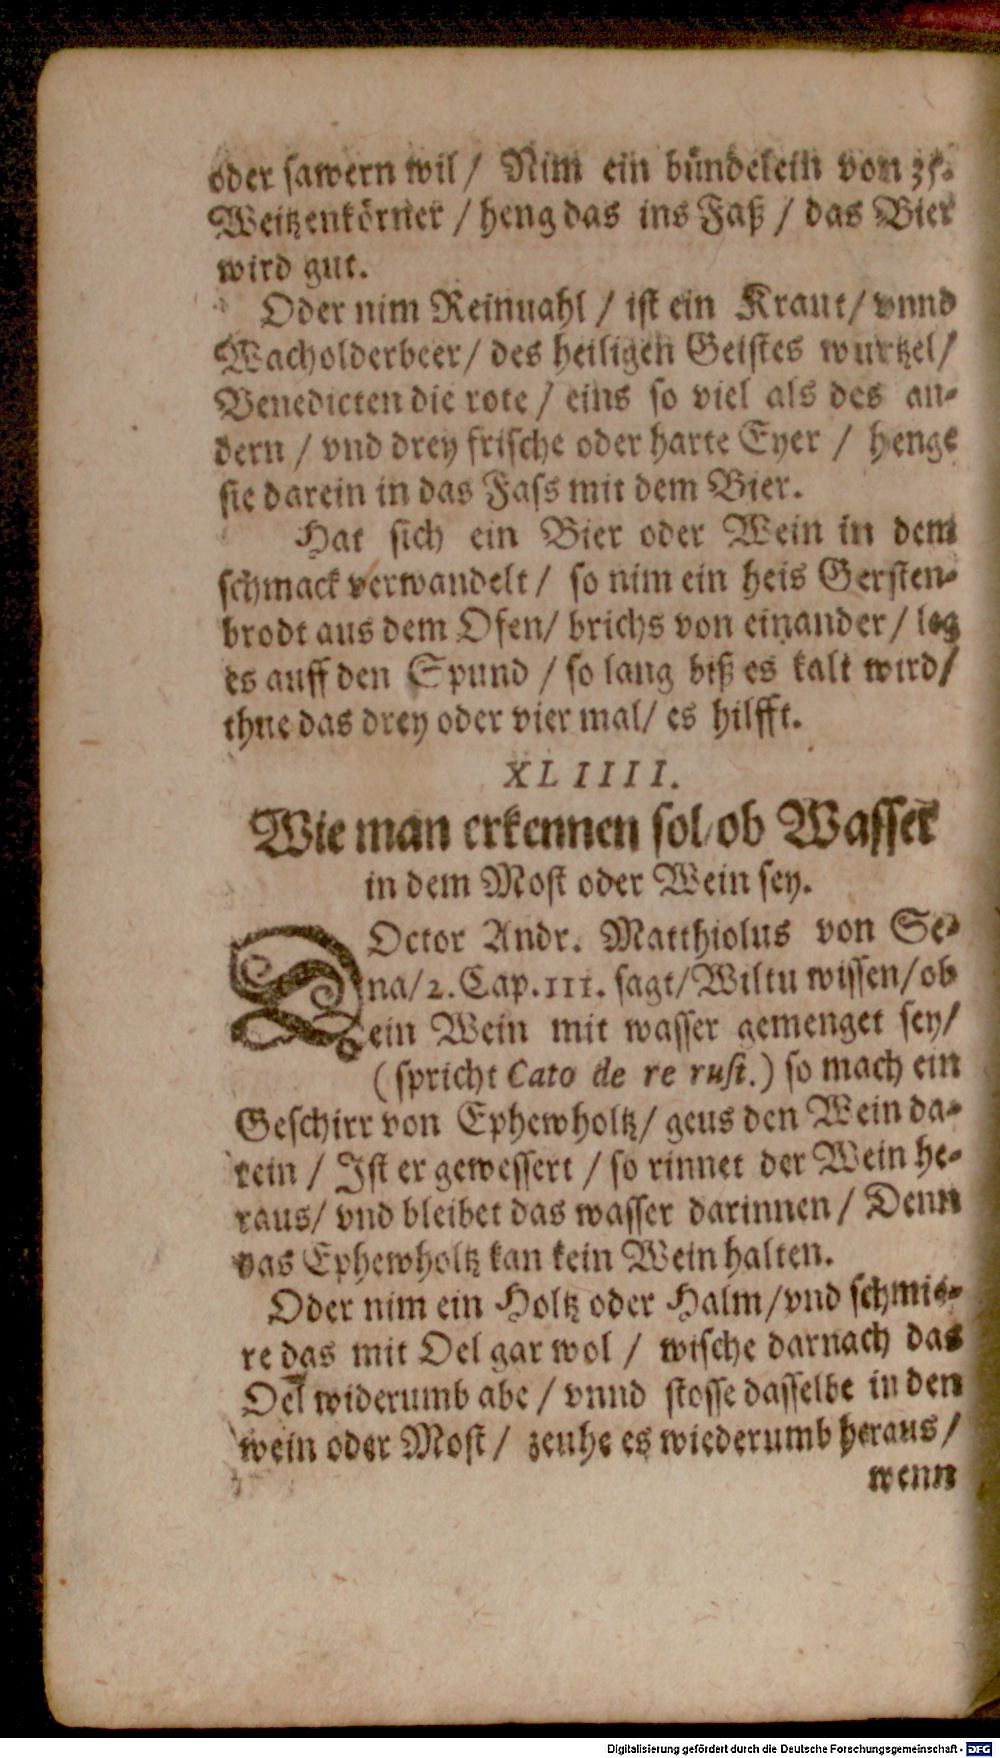 oder sawern wil / Nim ein bündelein von 35.
Weitzenkörner / heng das ins Faß / das Bier
wird gut.
Oder nim Reinuahl / ist ein Kraut / vnnd
Wacholderbeer / des heiligen Geistes wurtzel /
Benedicten die rote / eins so viel als des an-
dern / vnd drey frische oder harte Eyer / henge
sie darein in das Fass mit dem Bier.
Hat sich ein Bier oder Wein in dem
schmack verwandelt / so nim ein heis Gersten-
brodt aus dem Ofen / brichs von einander / leg
es auff den Spund / so lang biß es kalt wird /
thue das drey oder vier mal / es hilfft.
XLIIII.
Wie man erkennen sol / ob Wasser
in dem Most oder Wein sey.
DOctor Andr. Matthiolus von Se-
na / 2. Cap. III. sagt / Wiltu wissen / ob
ein Wein mit wasser gemenget sey /
(spricht Cato de re rust.) so mach ein
Geschirr von Ephewholtz / geus den Wein da-
rein / Ist er gewessert / so rinnet der Wein he-
raus / vnd bleibet das wasser darinnen / Denn
das Ephewholtz kan kein Wein halten.
Oder nim ein Holtz oder Halm / vnd schmie-
re das mit Oel gar wol / wische darnach das
Oel widerumb abe / vnnd stosse dasselbe in den
wein oder Most / zeuhe es wiederumb heraus /
wenn
Digitalisierung gefördert durch die Deutsche Forschungsgemeinschaft - DFG